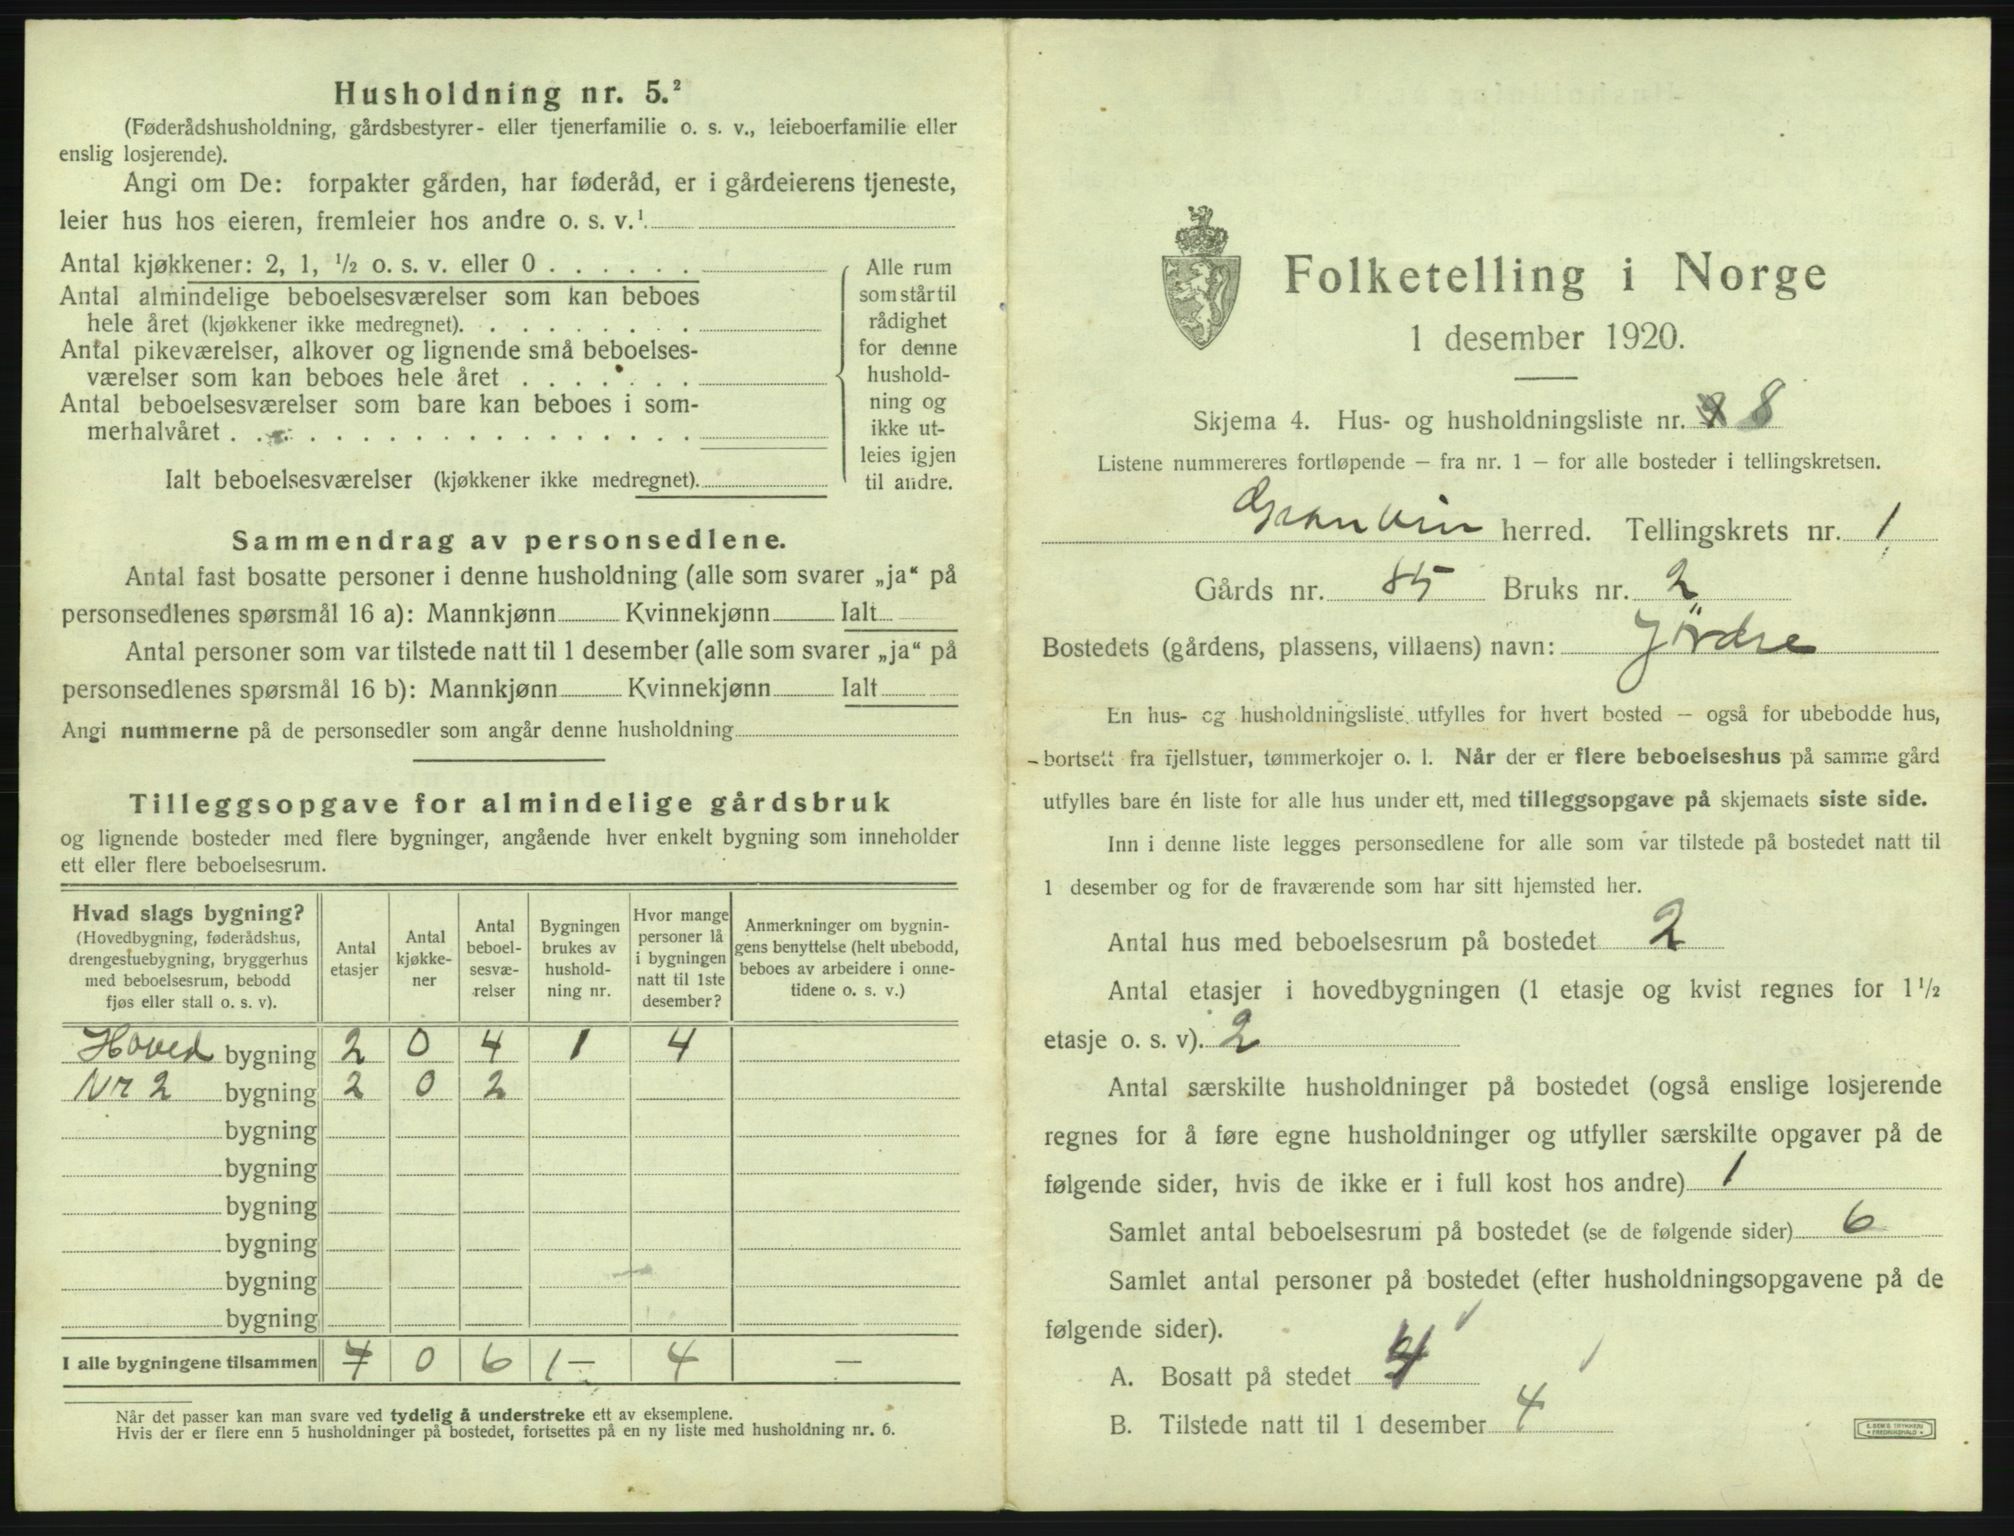 Husholdning nr. 5.²
(Føderådshusholdning, gårdsbestyrer- eller tjenerfamilie o. s. v., leieboerfamilie eller
enslig losjerende).
Angi om De: forpakter gården, har føderåd, er i gårdeierens tjeneste,
leier hus hos eieren, fremleier hos andre o. s. v.¹.
Antal kjøkkener: 2, 1, ½ o. s. v. eller 0
Antal almindelige beboelsesværelser som kan beboes
hele året (kjøkkener ikke medregnet).
Antal pikeværelser, alkover og lignende små beboelses-
værelser som kan beboes hele året
Antal beboelsesværelser som bare kan beboes i som-
merhalvåret
Ialt beboelsesværelser (kjøkkener ikke medregnet).
Alle rum
som står til
rådighet
for denne
hushold-
ning og
ikke ut-
leies igjen
til andre.
Sammendrag av personsedlene.
Antal fast bosatte personer i denne husholdning (alle som svarer „ja“ på
personsedlenes spørsmål 16 a): Mannkjønn Kvinnekjønn Ialt
Antal personer som var tilstede natt til 1 desember (alle som svarer „ja“ på
personsedlenes spørsmål 16 b): Mannkjønn Kvinnekjønn Ialt
Angi nummerne på de personsedler som angår denne husholdning
Tilleggsopgave for almindelige gårdsbruk
og lignende bosteder med flere bygninger, angående hver enkelt bygning som inneholder
ett eller flere beboelsesrum.
Hvad slags bygning?
(Hovedbygning, føderådshus,
drengestuebygning, bryggerhus
med beboelsesrum, bebodd
fjøs eller stall o. s. v).
Antal
etasjer
Antal
kjøkke-
ner
Antal
beboel-
sesvæ-
relser
Bygningen
brukes av
hushold-
ning nr.
Hvor mange
personer lå
i bygningen
natt til 1ste
desember?
Anmerkninger om bygnin-
gens benyttelse (helt ubebodd,
beboes av arbeidere i onne-
tidene o. s. v.)
Hoved bygning 2 0 4 1 4
Nr 2 bygning 2 0 2
bygning
bygning
bygning
bygning
bygning
bygning
I alle bygningene tilsammen 4 0 6 1 – 4 –
Når det passer kan man svare ved tydelig å understreke ett av eksemplene.
Hvis der er flere enn 5 husholdninger på bostedet, fortsettes på en ny liste med husholdning nr. 6.
Folketelling i Norge
1 desember 1920.
Skjema 4. Hus- og husholdningsliste nr. 8
Listene nummereres fortløpende – fra nr. 1 – for alle bosteder i tellingskretsen.
Granvin herred. Tellingskrets nr. 1
Gårds nr. 85 Bruks nr. 2
Bostedets (gårdens, plassens, villaens) navn: Jördre
En hus- og husholdningsliste utfylles for hvert bosted – også for ubebodde hus,
bortsett fra fjellstuer, tømmerkojer o. l. Når der er flere beboelseshus på samme gård
utfylles bare én liste for alle hus under ett, med tilleggsopgave på skjemaets siste side.
Inn i denne liste legges personsedlene for alle som var tilstede på bostedet natt til
1 desember og for de fraværende som har sitt hjemsted her.
Antal hus med beboelsesrum på bostedet 2
Antal etasjer i hovedbygningen (1 etasje og kvist regnes for 1½
etasje o. s. v). 2
Antal særskilte husholdninger på bostedet (også enslige losjerende
regnes for å føre egne husholdninger og utfyller særskilte opgaver på de
følgende sider, hvis de ikke er i full kost hos andre) 1
Samlet antal beboelsesrum på bostedet (se de følgende sider) 6
Samlet antal personer på bostedet (efter husholdningsopgavene på de
følgende sider).
A. Bosatt på stedet 4
B. Tilstede natt til 1 desember 4